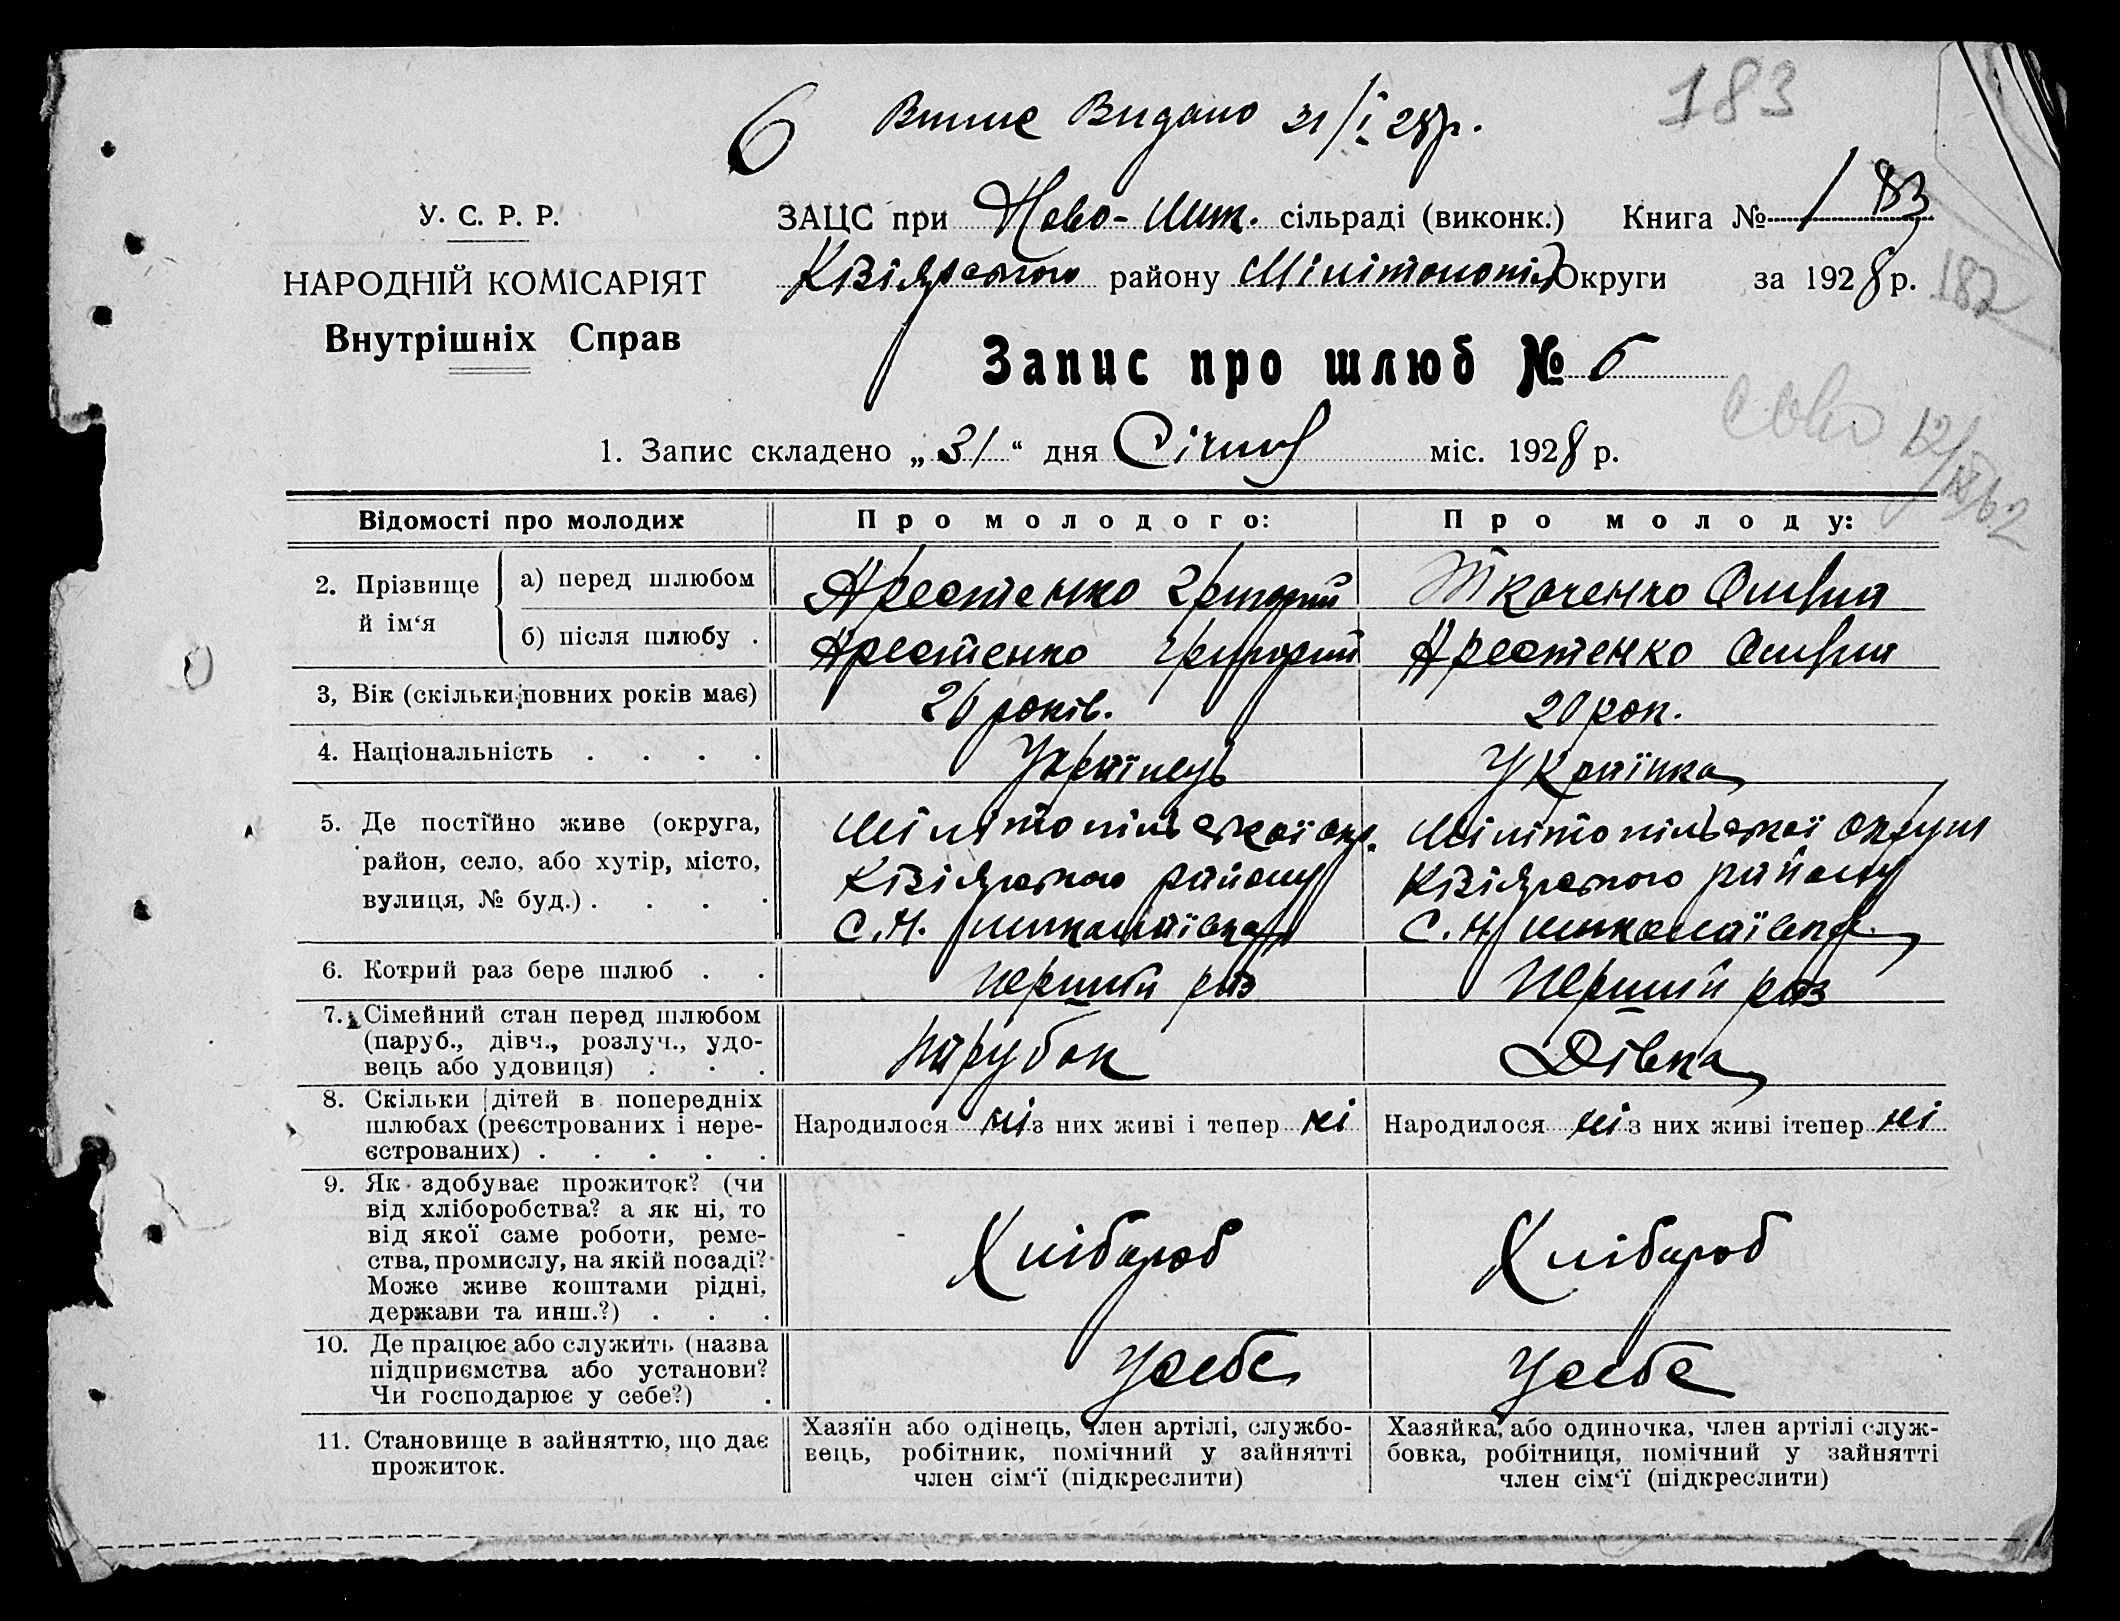 183
6 Випис Видано 31/I 28р.
У. С. Р. Р.
ЗАЦС при Ново-Мик. сільраді (виконк.) Книга № 1 83
НАРОДНІЙ КОМІСАРІЯТ
Кізіярського району Мілітопопіл Округи за 1928 р.
182
Внутрішніх Справ
Запис про шлюб № 6
1. Запис складено „31“ дня Січня міс. 1928 р.
Відомості про молодих Про молодого: Про молоду:
2. Прізвище й ім‘я
а) перед шлюбом Арестенко Григорий Ткаченко
б) після шлюбу . Арестенко Григорий Арестенко
3, Вік (скільки повних років має) 26 років. 20 рок.
4. Національність . . . . Українець Українка
5. Де постійно живе (округа, Мілітопільської окр. Мілітопільської округи
район, село, або хутір, місто, Кізіярського району Кізіярського району
вулиця, № буд.) . . . . С. Н. Миколаївка С. Н. Миколаївка
6. Котрий раз бере шлюб . . Перший раз Перший раз
7. Сімейний стан перед шлюбом
(паруб., дівч., розлуч., удо-
вець або удовиця) . . . Парубок Дівка
8. Скільки дітей в попередніх
шлюбах (реєстрованих і нере- Народилося ні з них живі і тепер ні Народилося ні з них живі ітепер ні
єстрованих) . . . . .
9. Як здобуває прожиток? (чи
від хліборобства? а як ні, то
від якої саме роботи, реме- Хлібороб Хлібороб
ства, промислу, на якій посаді?
Може живе коштами рідні,
держави та инш.?) . . .
10. Де працює або служить (назва
підприємства або установи? У себе У себе
Чи господарює у себе?) .
11. Становище в зайняттю, що дає
прожиток.
Хазяїн або одінець, член артілі, службо-
вець, робітник, помічний у зайнятті
член сім‘ї (підкреслити)
Хазяйка, або одиночка, член артілі служ-
бовка, робітниця, помічний у зайнятті
член сім‘ї (підкреслити)